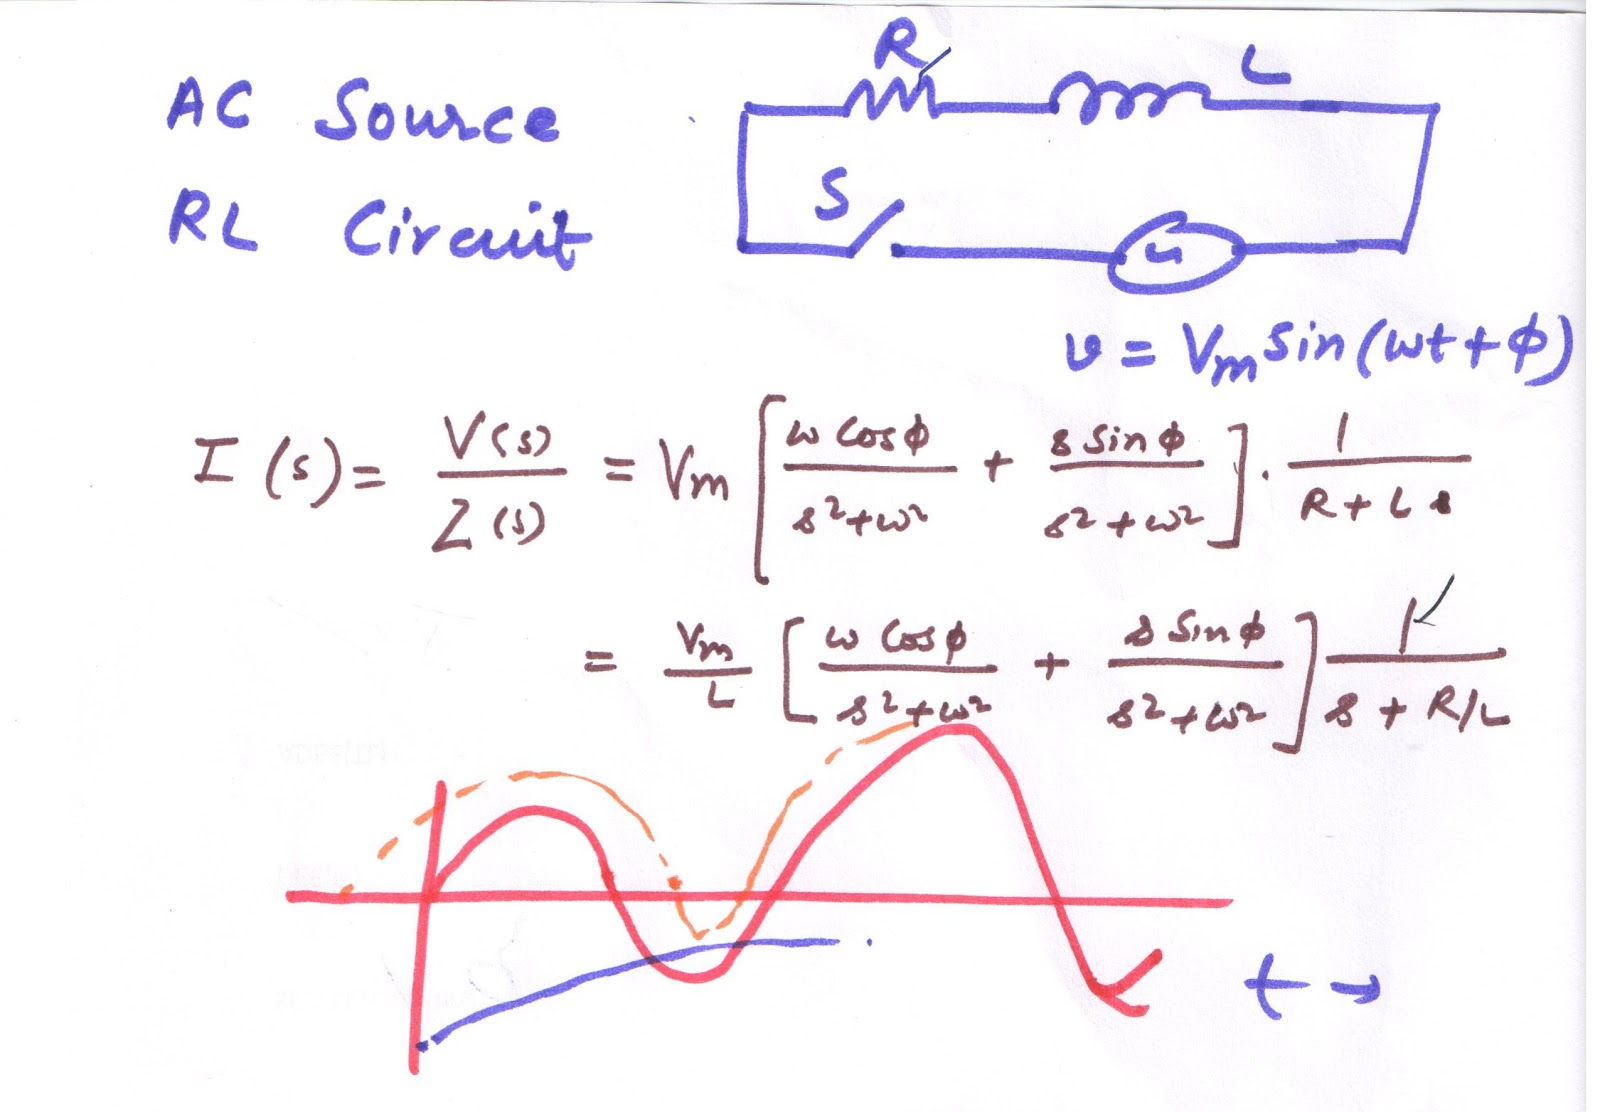 AC Source
RL Circuit
R
L
S
v = Vm Sin(ωt + φ)
I(s) = V(s)/Z(s) = Vm [ω Cosφ/(s²+ω²) + s Sinφ/(s²+ω²)] · 1/(R+Ls)
= Vm/L [ω Cosφ/(s²+ω²) + s Sinφ/(s²+ω²)] 1/(s + R/L)
t →